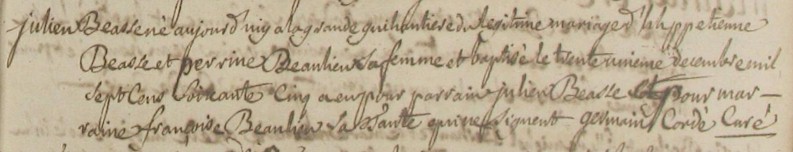 julien Beasse né aujourd'huy a la grande guihantiere du legitime mariage d' etienne
Beasse et perrine Beaulieu sa femme et baptisé le trente unieme decembre mil
sept cens soixante cinq a eu pour parrain julien Beasse et pour mar-
raine françoise Beaulieu sa tante qui ne signent germain Cordé Curé